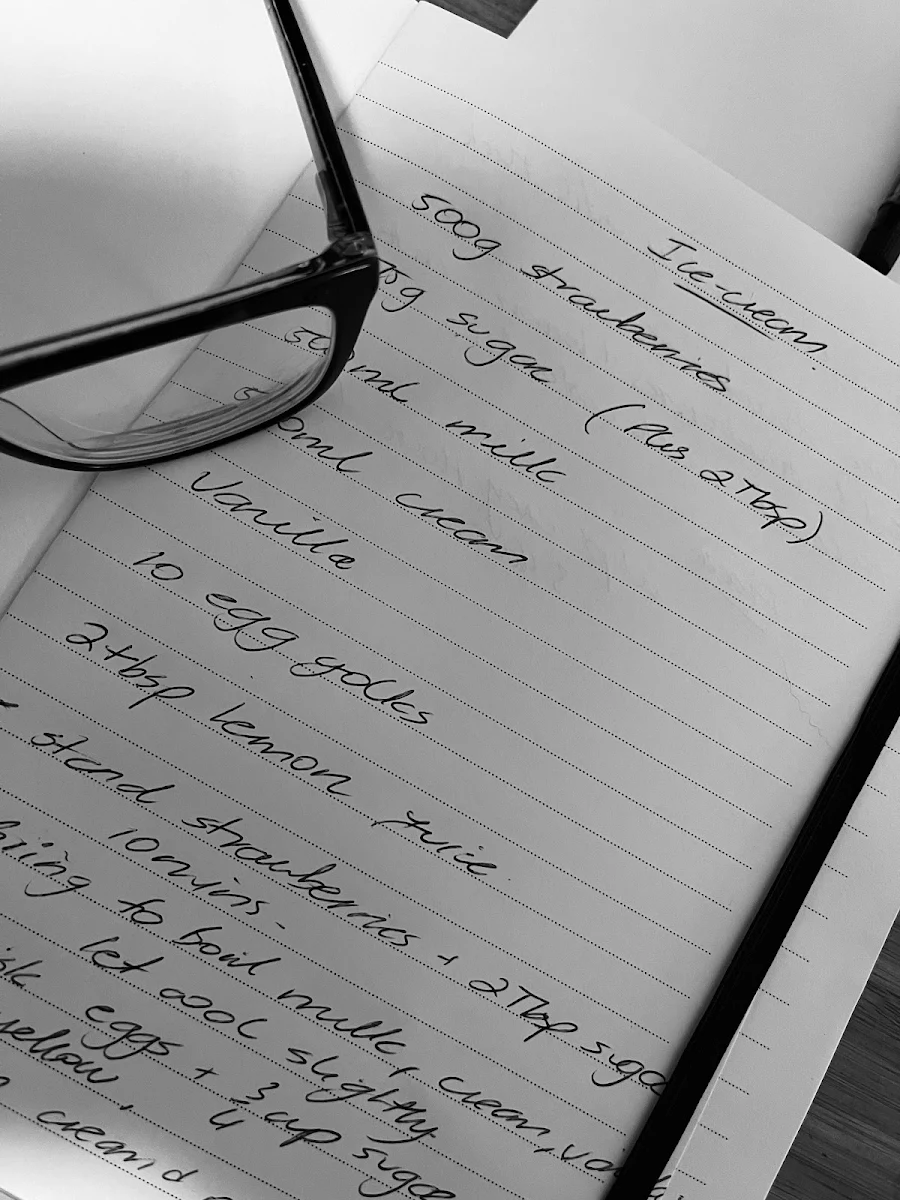 Ice-cream.
500g strawberries
5g sugar (plus 2Tbsp)
50 ml milk
5 0ml cream
Vanilla
10 egg yolks
2tbsp lemon juice.
- stand strawberries + 2Tbsp suga
10mins-
to boil milk, cream, va
let cool slightly
eggs + 3/4 cup sugar
yellow.
cream